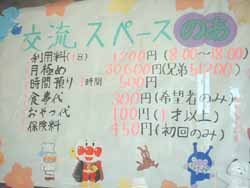 交流スペースのあ
利用料(1日) 1200円(8:00〜18:00)
月極め 30600円(兄弟51200)
時間預り 1時間 500円
食事代 300円(希望者のみ)
おやつ代 100円(1才以上)
保険料 450円(初回のみ)